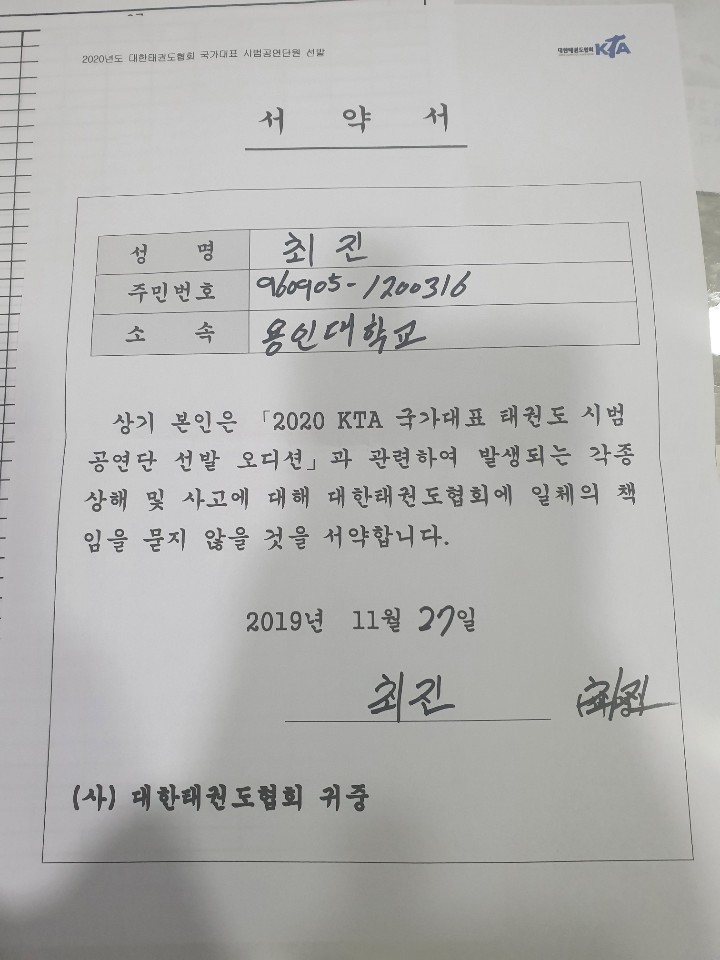 2020년도 대한태권도협회 국가대표 시범공연단원 선발
대한태권도협회 KTA
서 약 서
성 명 최 진
주민번호 960905-1200316
소 속 용인대학교
상기 본인은 「2020 KTA 국가대표 태권도 시범
공연단 선발 오디션」과 관련하여 발생되는 각종
상해 및 사고에 대해 대한태권도협회에 일체의 책
임을 묻지 않을 것을 서약합니다.
2019년 11월 27일
최진 최진
(사) 대한태권도협회 귀중